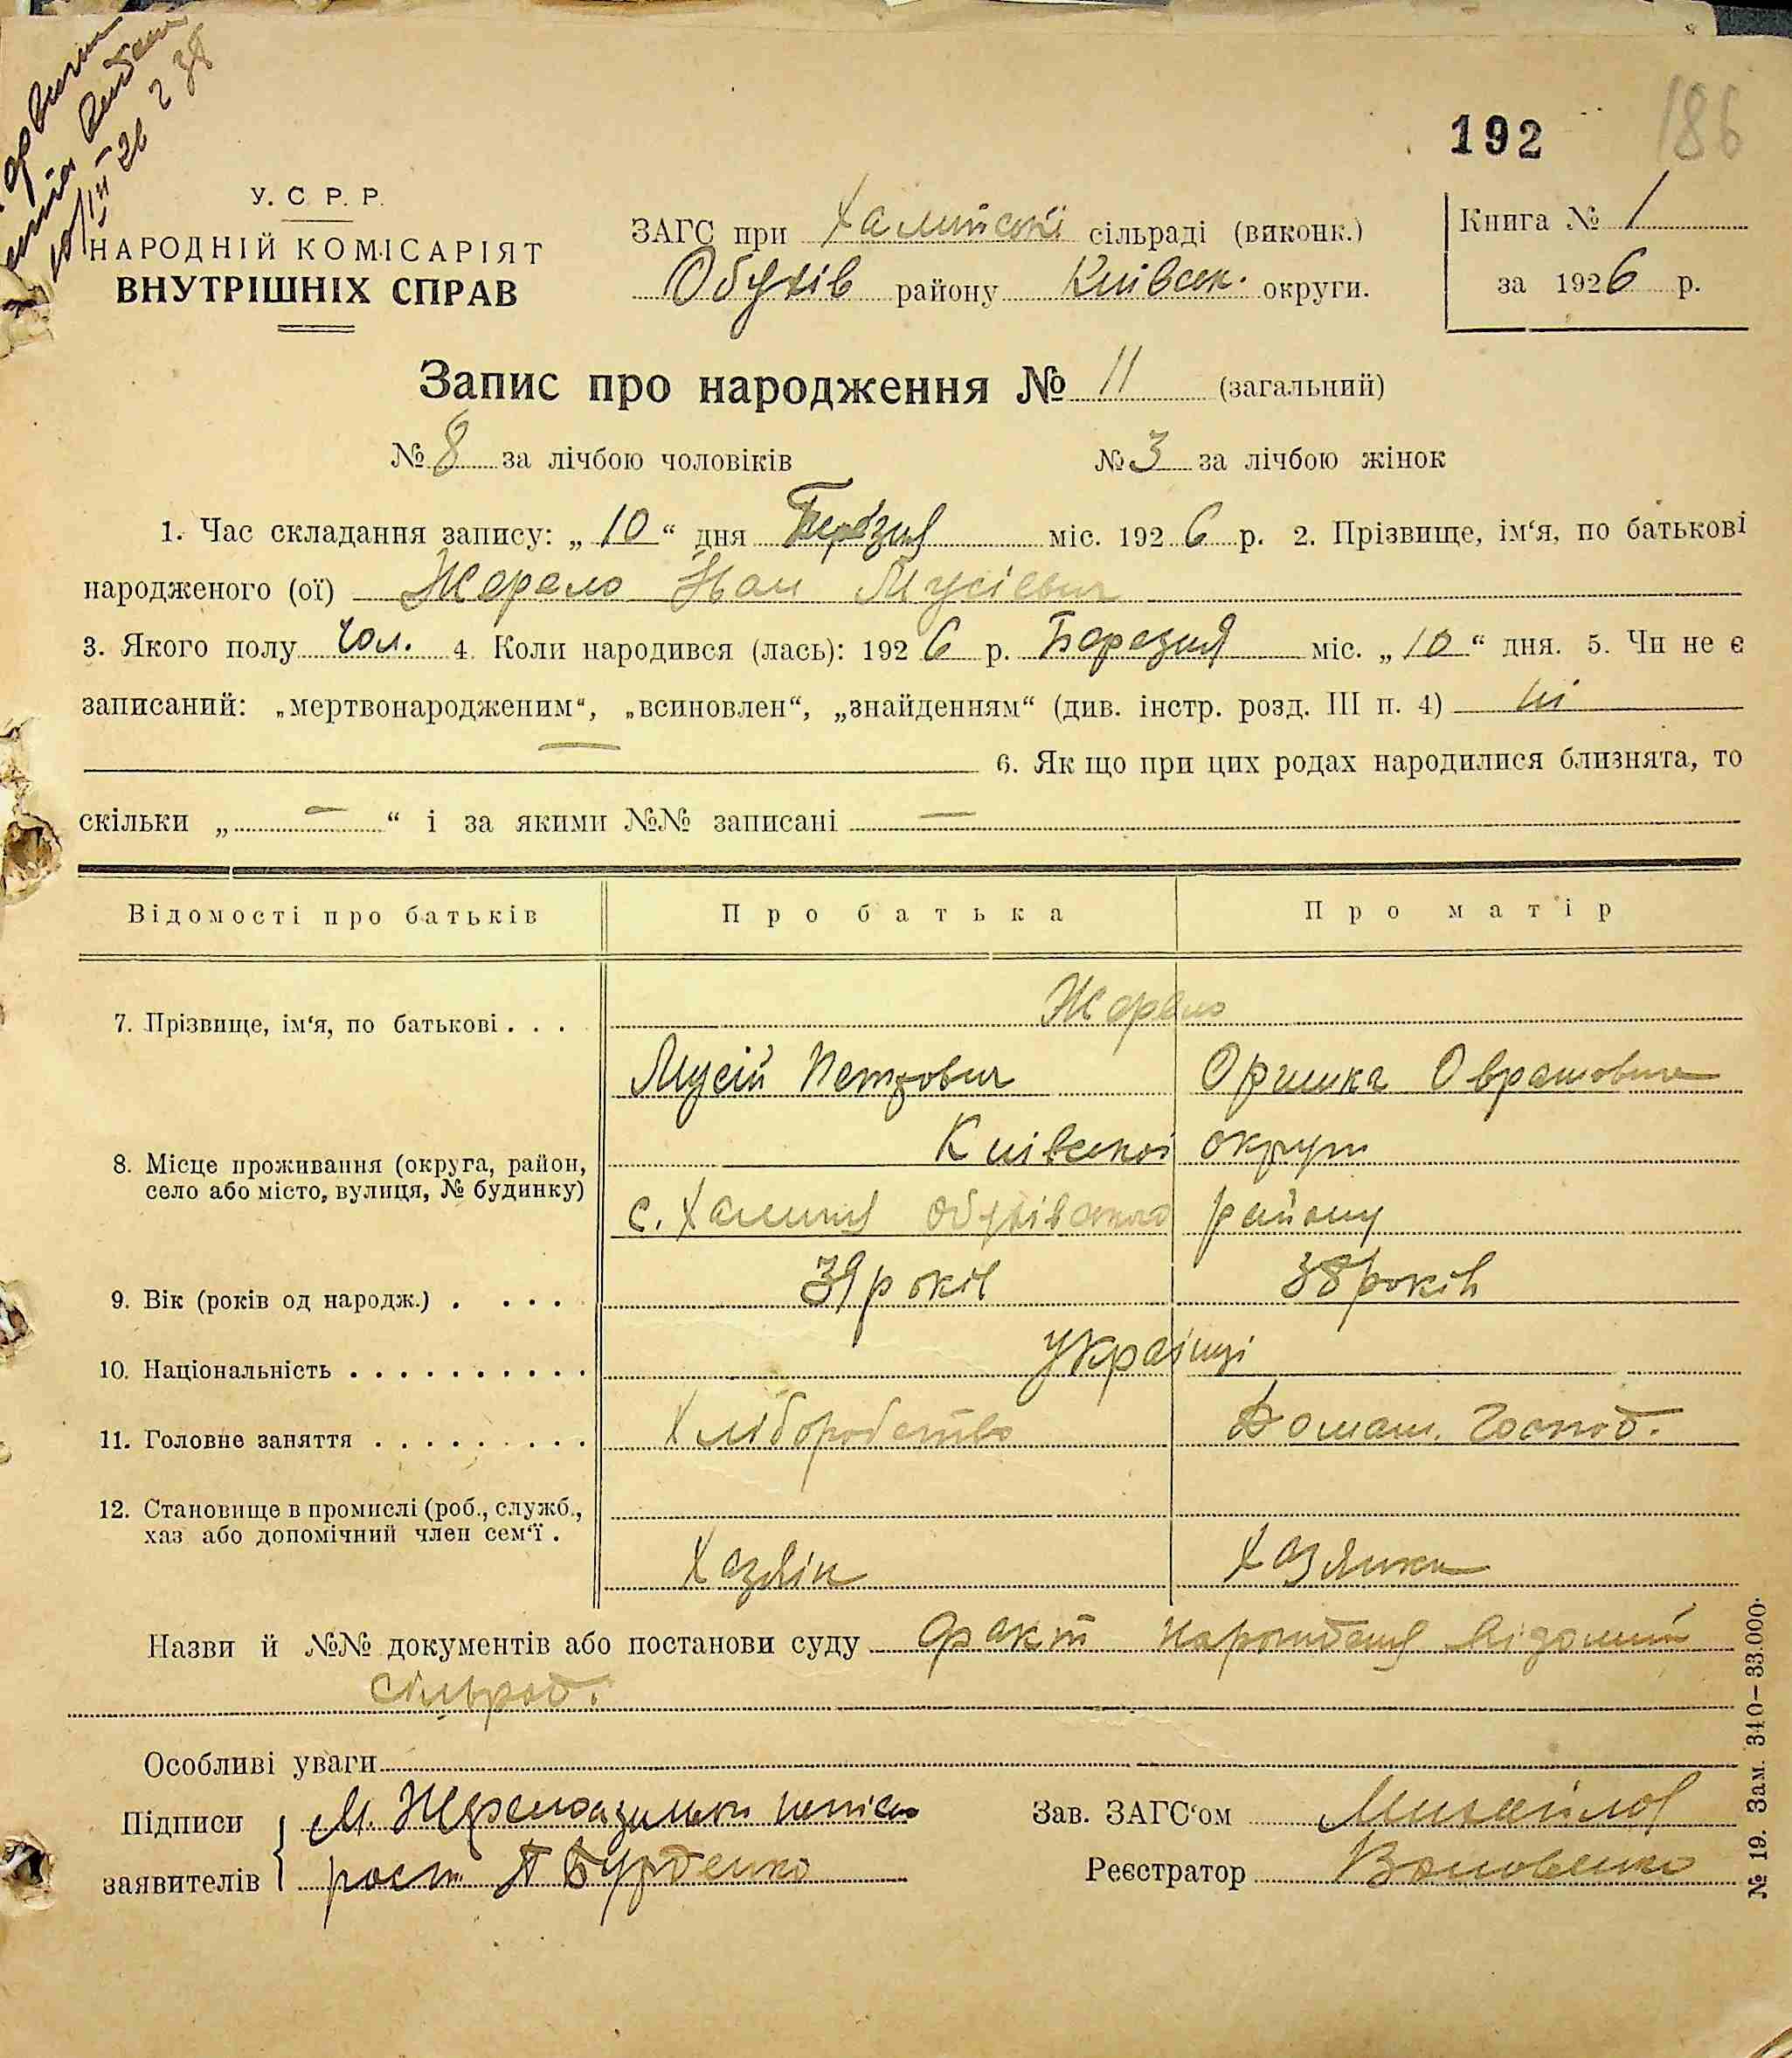 192
186
У. С. Р. Р.
НАРОДНІЙ КОМІСАРІЯТ
ВНУТРІШНІХ СПРАВ
ЗАГС при Халипській сільраді (виконк.)
Обухів району Київськ. округи.
Книга № 1
за 1926 р.
Запис про народження № 11 (загальний)
№ 8 за лічбою чоловіків № 3 за лічбою жінок
1. Час складання запису: „ 10 “ дня Березня міс. 1926 р. 2. Прізвище, ім‘я, по батькові
народженого (ої) Жерело Мусієвич
3. Якого полу чол. 4. Коли народився (лась): 1926 р. Березня міс. „ 10 “ дня. 5. Чи не є
записаний: „мертвонародженим“, „всиновлен“, „знайденням“ (див. інстр. розд. III п. 4) ні
— 6. Як що при цих родах народилися близнята, то
скільки „ — “ і за якими №№ записані —
Відомості про батьків Про батька Про матір
7. Прізвище, ім‘я, по батькові . . . Жерело
Мусій Петрович Оришка
8. Місце проживання (округа, район,
село або місто, вулиця, № будинку)
Київської округи
с. Халипя Обухівського району
9. Вік (років од народж.) . . . . 39 років 38 років
10. Національність . . . . . . . . . . Українці
11. Головне заняття . . . . . . . . . Хліборобство Домаш. господ.
12. Становище в промислі (роб., служб.,
хаз або допомічний член сем‘ї .
Хазяїн Хазяйка
Назви й №№ документів або постанови суду Факт народження відомий
сільрад.
Особливі уваги
Підписи
заявителів
М. Жерело
рост П Бурденко
Зав. ЗАГС‘ом Михайлов
Реєстратор
№ 19. Зам. 340—33.000.